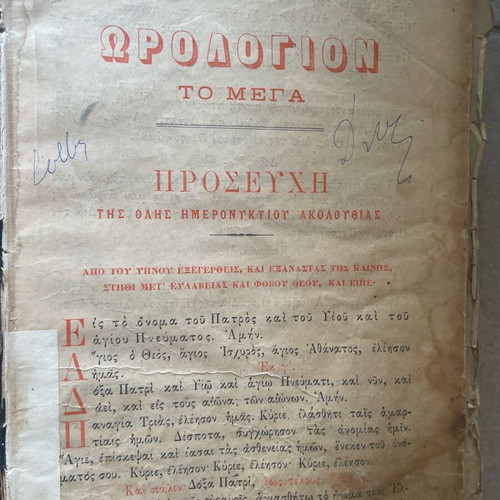 ΩΡΟΛΟΓΙΟΝ
ΤΟ ΜΕΓΑ
ΠΡΟΣΕΥΧΗ
ΤΗΣ ΟΛΗΣ ΗΜΕΡΟΝΥΚΤΙΟΥ ΑΚΟΛΟΥΘΙΑΣ
ΑΠΟ ΤΟΥ ΥΠΝΟΥ ΕΞΕΓΕΡΘΕΙΣ, ΚΑΙ ΕΞΑΝΑΣΤΑΣ ΤΗΣ ΚΛΙΝΗΣ,
ΣΤΗΘΙ ΜΕΤ' ΕΥΛΑΒΕΙΑΣ ΚΑΙ ΦΟΒΟΥ ΘΕΟΥ, ΚΑΙ ΕΙΠΕ·
Εἰς τὸ ὄνομα τοῦ Πατρὸς καὶ τοῦ Υἱοῦ καὶ τοῦ
ἁγίου Πνεύματος. Ἀμήν.
Ἅγιος ὁ Θεός, ἅγιος Ἰσχυρός, ἅγιος Ἀθάνατος, ἐλέησον
ἡμᾶς. Ἐκ γ'.
Δόξα Πατρὶ καὶ Υἱῷ καὶ ἁγίῳ Πνεύματι, καὶ νῦν, καὶ
ἀεί, καὶ εἰς τοὺς αἰῶνας τῶν αἰώνων. Ἀμήν.
Παναγία Τριάς, ἐλέησον ἡμᾶς. Κύριε, ἱλάσθητι ταῖς ἁμαρ-
τίαις ἡμῶν. Δέσποτα, συγχώρησον τὰς ἀνομίας ἡμῖν.
Ἅγιε, ἐπίσκεψαι καὶ ἴασαι τὰς ἀσθενείας ἡμῶν, ἕνεκεν τοῦ ὀνό-
ματός σου. Κύριε, ἐλέησον· Κύριε, ἐλέησον· Κύριε, ἐλέησον.
Καὶ πάλιν· Δόξα Πατρί, ἕως τέλους.
ἁγιασθήτω τὸ ὄνομά σου. Ἐλ-